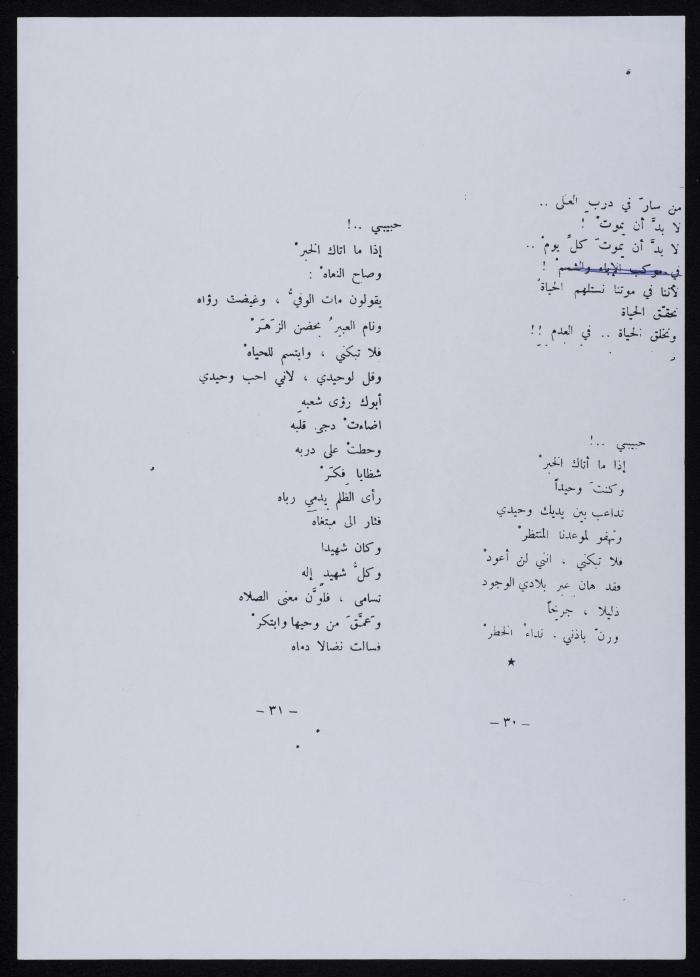 من سارَ في درب العلى ..
لا بدَّ أن يموتْ !
لا بدَّ أن يموتَ كلَّ يومْ ..
في موكب الإباء والشممْ !
لأننا في موتنا نستلهم الحياةُ
نحقّق الحياة
ونخلق الحياة .. في العدم !!
حبيبي ..!
إذا ما أتاك الخبرْ
وكنتَ وحيداً
تداعب بين يديك وحيدي
وتهفو لموعدنا المنتظرْ
فلا تبكني ، انني لن أعودْ
فقد هان عبر بلادي الوجود
ذليلا ، جريحاً
ورنّ باذني . نداءْ الخطرْ
★
– ٣٠ –
حبيبي ..!
إذا ما اتاك الخبرْ
وصاح النعاهْ :
يقولون مات الوفيُّ ، وغيضتْ رؤاه
ونام العبيرُ بحضن الزَهَرْ
فلا تبكني ، وابتسم للحياهْ
وقل لوحيدي ، لاني احب وحيدي
أبوك رؤى شعبهِ
اضاءتْ دجى قلبه
وحطتْ على دربه
شظايا فِكَرْ
رأى الظلم يدمي رباه
فثار الى مبتغاه
وكان شهيدا
وكلُّ شهيدٍ إله
تسامى ، فلوَّن معنى الصلاه
وَعمَّقَ من وحيها وابتكرْ
فسالت نضالا دماه
– ٣١ –